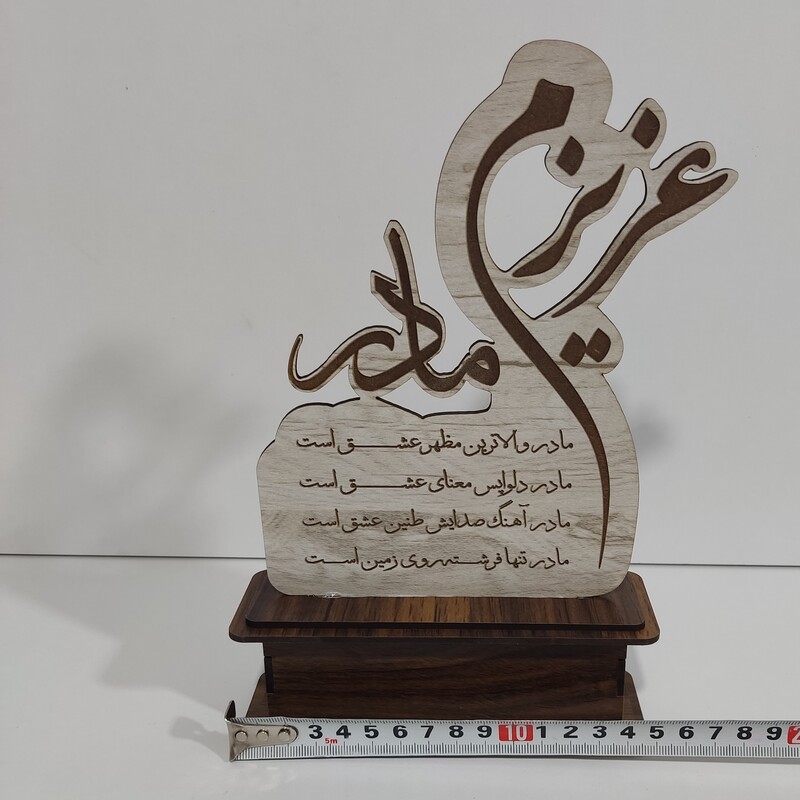 عزیزم
مادر
مادر والاترین مظهر عشق است
مادر دلواپس معنای عشق است
مادر آهنگ صدایش طنین عشق است
مادر تنها فرشته روی زمین است
3 4 5 6 7 8 9 10 1 2 3 4 5 6 7 8 9 2
5m